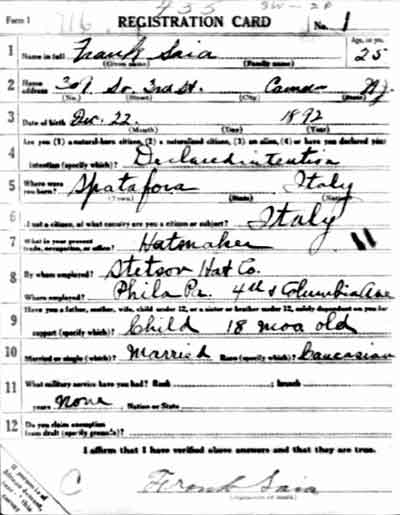 Form 1 716 433
REGISTRATION CARD No. 1
1 Name in full Frank Saia Age, in yrs. 25
(Given name) (Family name)
2 Home address 309 So. 3rd St. Camden N.J.
(No.) (Street) (City) (State)
3 Date of birth Dec. 22. 1892
(Month) (Day) (Year)
Are you (1) a natural-born citizen, (2) a naturalized citizen, (3) an alien, (4) or have you declared your
4 intention (specify which)? Declared intention
5 Where were you born? Spatafora Italy
(Town) (State) (Nation)
6 If not a citizen, of what country are you a citizen or subject? Italy
7 What is your present trade, occupation, or office? Hatmaker 11
8 By whom employed? Stetson Hat Co.
Where employed? Phila Pa. 4th & Columbia Ave
Have you a father, mother, wife, child under 12, or a sister or brother under 12, solely dependent on you for
9 support (specify which)? Child 18 moa old
10 Married or single (which)? Married Race (specify which)? Caucasian
11 What military service have you had? Rank ; branch
years None ; Nation or State
12 Do you claim exemption from draft (specify grounds)?
I affirm that I have verified above answers and that they are true.
C Frank Saia
If person is of African descent, tear off this corner